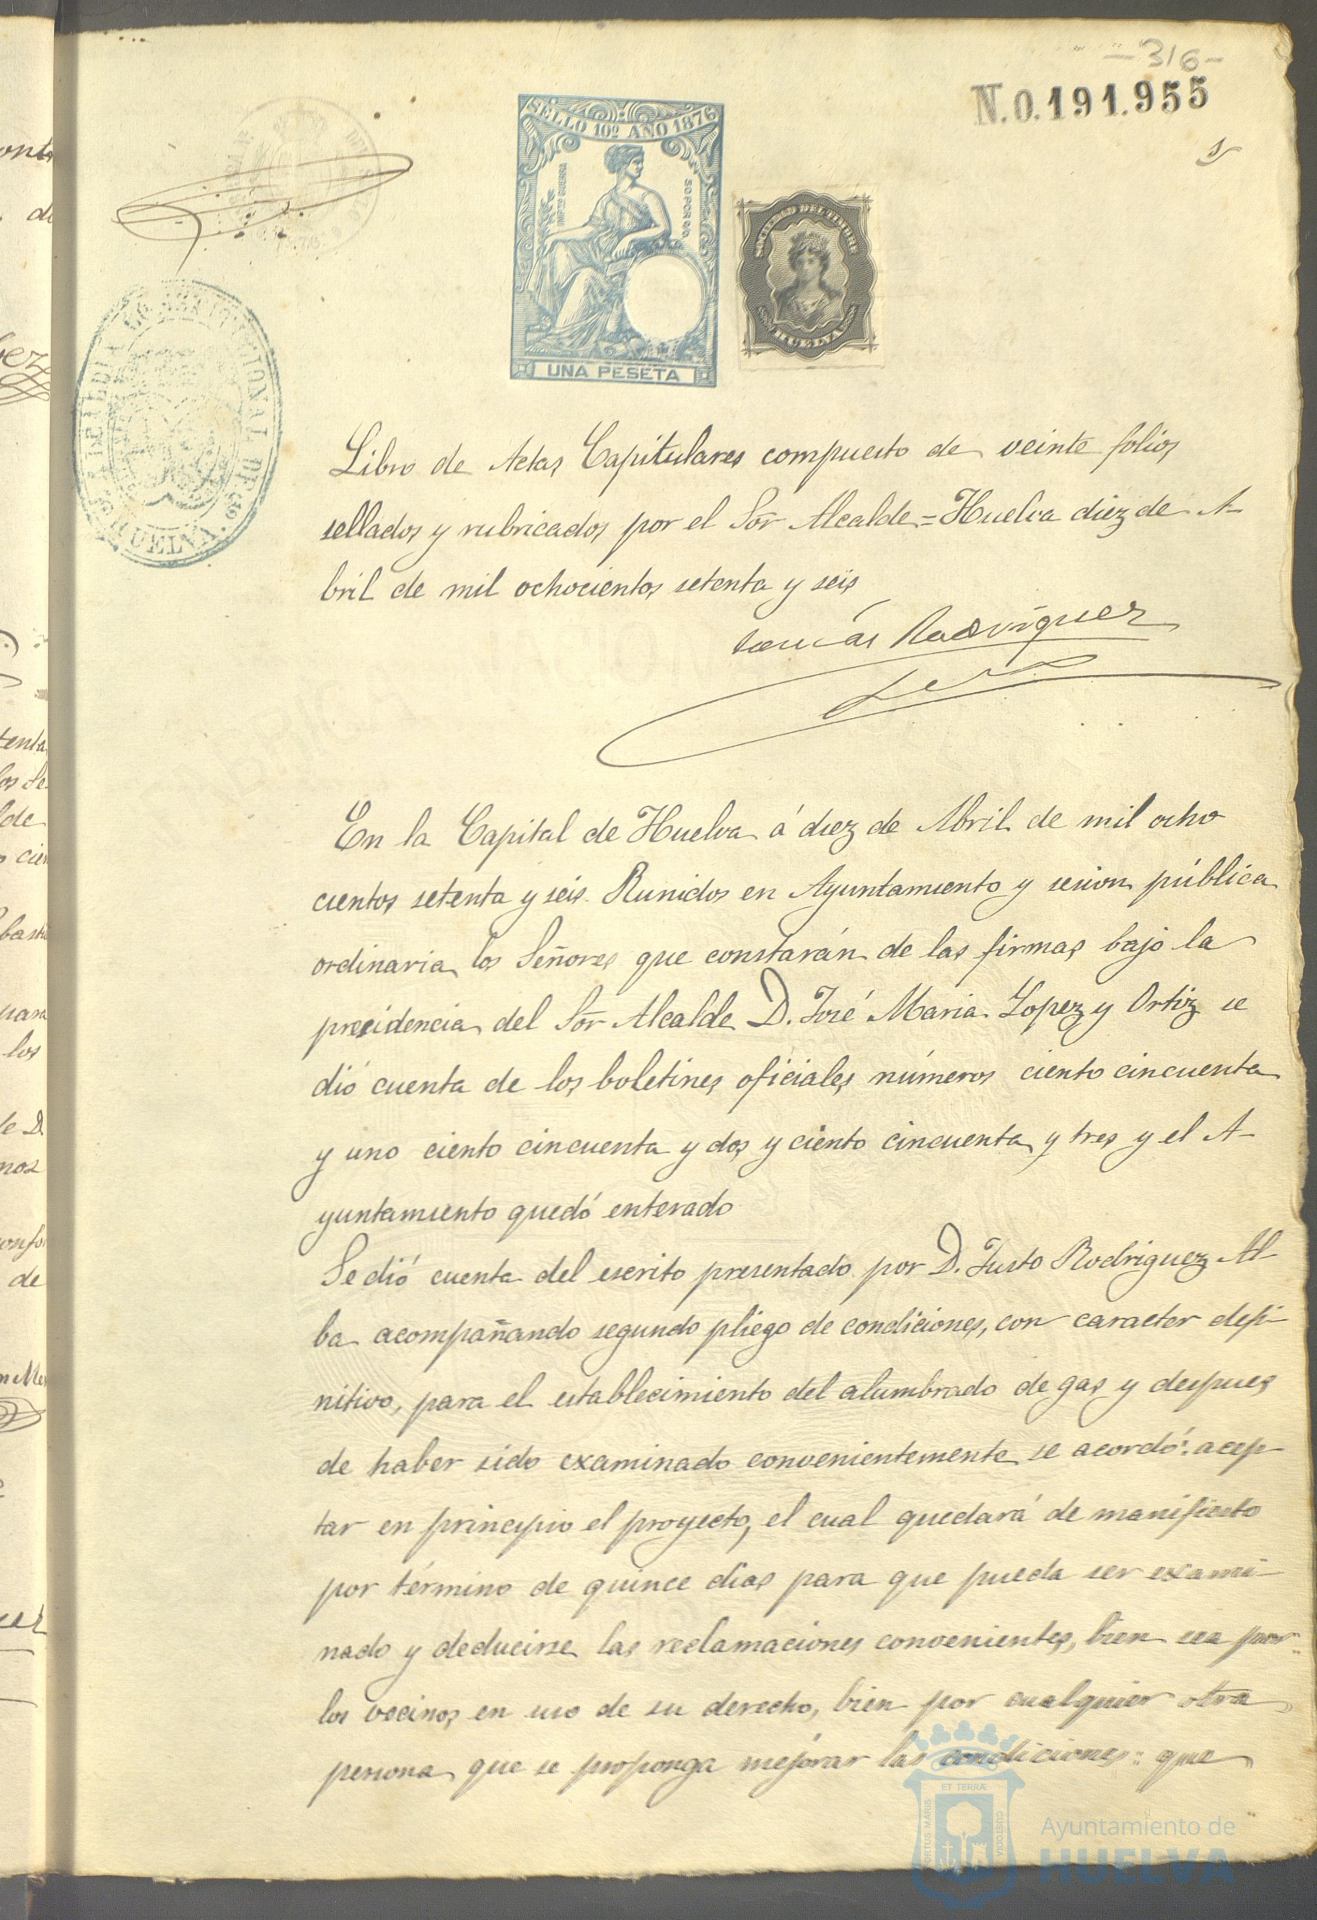 -316-
N.0.191.955
SELLO 10º AÑO 1876
IMPTO GUERRA
50 POR 100
UNA PESETA
SOCIEDAD DEL TIMBRE
HUELVA
ALCALDIA CONSTITUCIONAL DE
HUELVA
Libro de Actas Capitulares compuesto de veinte folios
sellados y rubricados por el Sor Alcalde = Huelva diez de A-
bril de mil ochocientos setenta y seis
Tomás Rodriguez
En la Capital de Huelva á diez de Abril de mil ocho
cientos setenta y seis. Runidos en Ayuntamiento y sesion pública
ordinaria los Señores que constarán de las firmas bajo la
presidencia del Sor Alcalde D. José Maria Lopez y Ortiz se
dió cuenta de los boletines oficiales números ciento cincuenta
y uno ciento cincuenta y dos y ciento cincuenta y tres y el A-
yuntamiento quedó enterado
Se dió cuenta del escrito presentado por D. Justo Rodriguez Al-
ba acompañando segundo pliego de condiciones, con caracter defi-
nitivo, para el establecimiento del alumbrado de gas y despues
de haber sido examinado convenientemente se acordó: acep-
tar en principio el proyecto, el cual quedará de manifiesto
por término de quince dias para que pueda ser exami-
nado y deducirse las reclamaciones convenientes, bien sea por
los vecinos en uso de su derecho, bien por cualquier otra
persona que se proponga mejorar las condiciones: que
PORTUS MARIS
ET TERRÆ
CUSTODIA
Ayuntamiento de
HUELVA